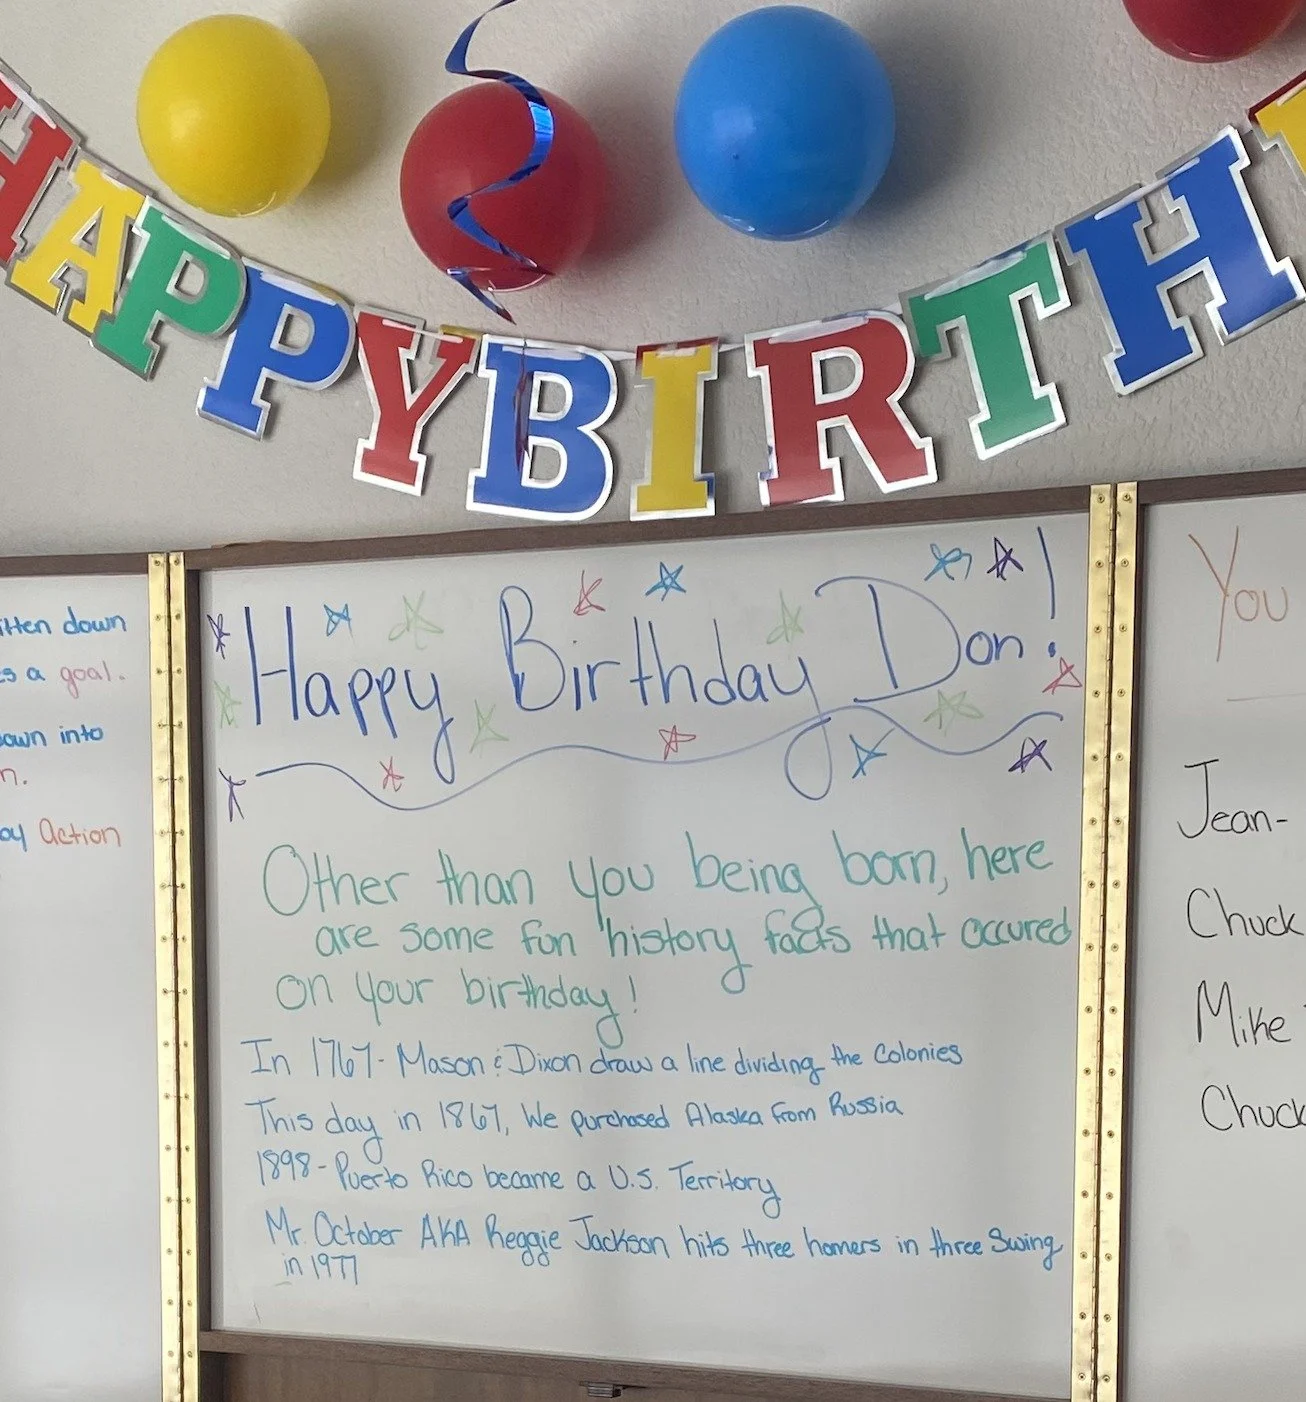 HAPPY BIRTH
Happy Birthday Don!
Other than you being born, here
are some fun history facts that occured
on your birthday!
In 1767- Mason & Dixon draw a line dividing the Colonies
This day in 1867, We purchased Alaska from Russia
1898- Puerto Rico became a U.S. Territory
Mr. October AKA Reggie Jackson hits three homers in three Swing
in 1977
down
a goal.
into
Action
You
Jean-
Chuck
Mike
Chuck